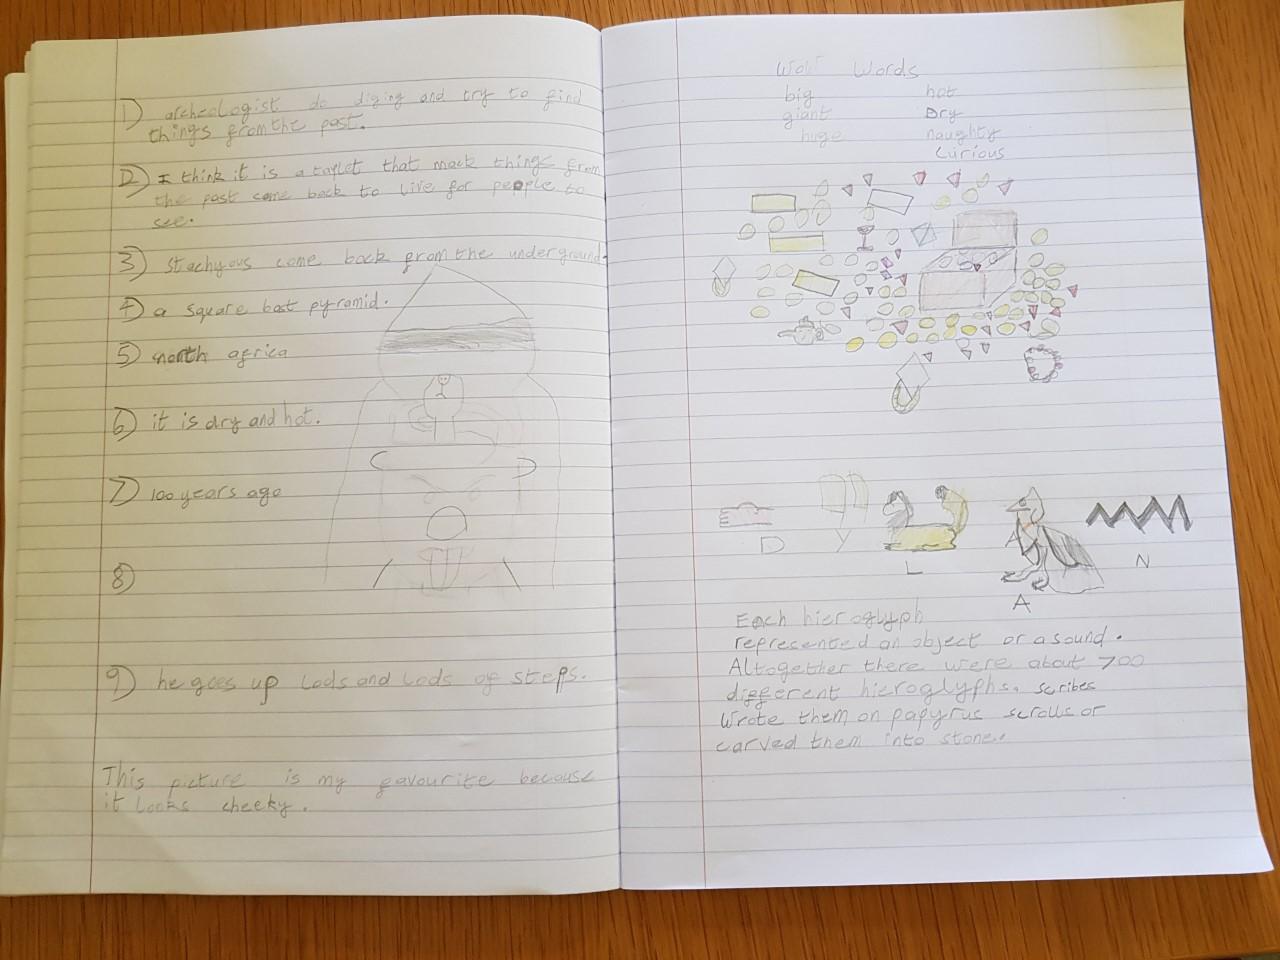 1) archeologist do diging and try to find
things from the past.
2) I think it is a taplet that mack things from
the past come back to live for people to
see.
3) stachyous come back from the underground.
4) a square bast pyramid.
5) north africa
6) it is dry and hot.
7) 100 years ago
8)
9) he goes up lods and lods of steps.
This picture is my favourite because
it looks cheeky.
Wow Words
big hot
giant Dry
huge naughty
curious
D Y L A N
A
Each hieroglyph
represented an object or a sound.
Altogether there were about 700
different hieroglyphs. scribes
wrote them on papyrus scrolls or
carved them into stone.